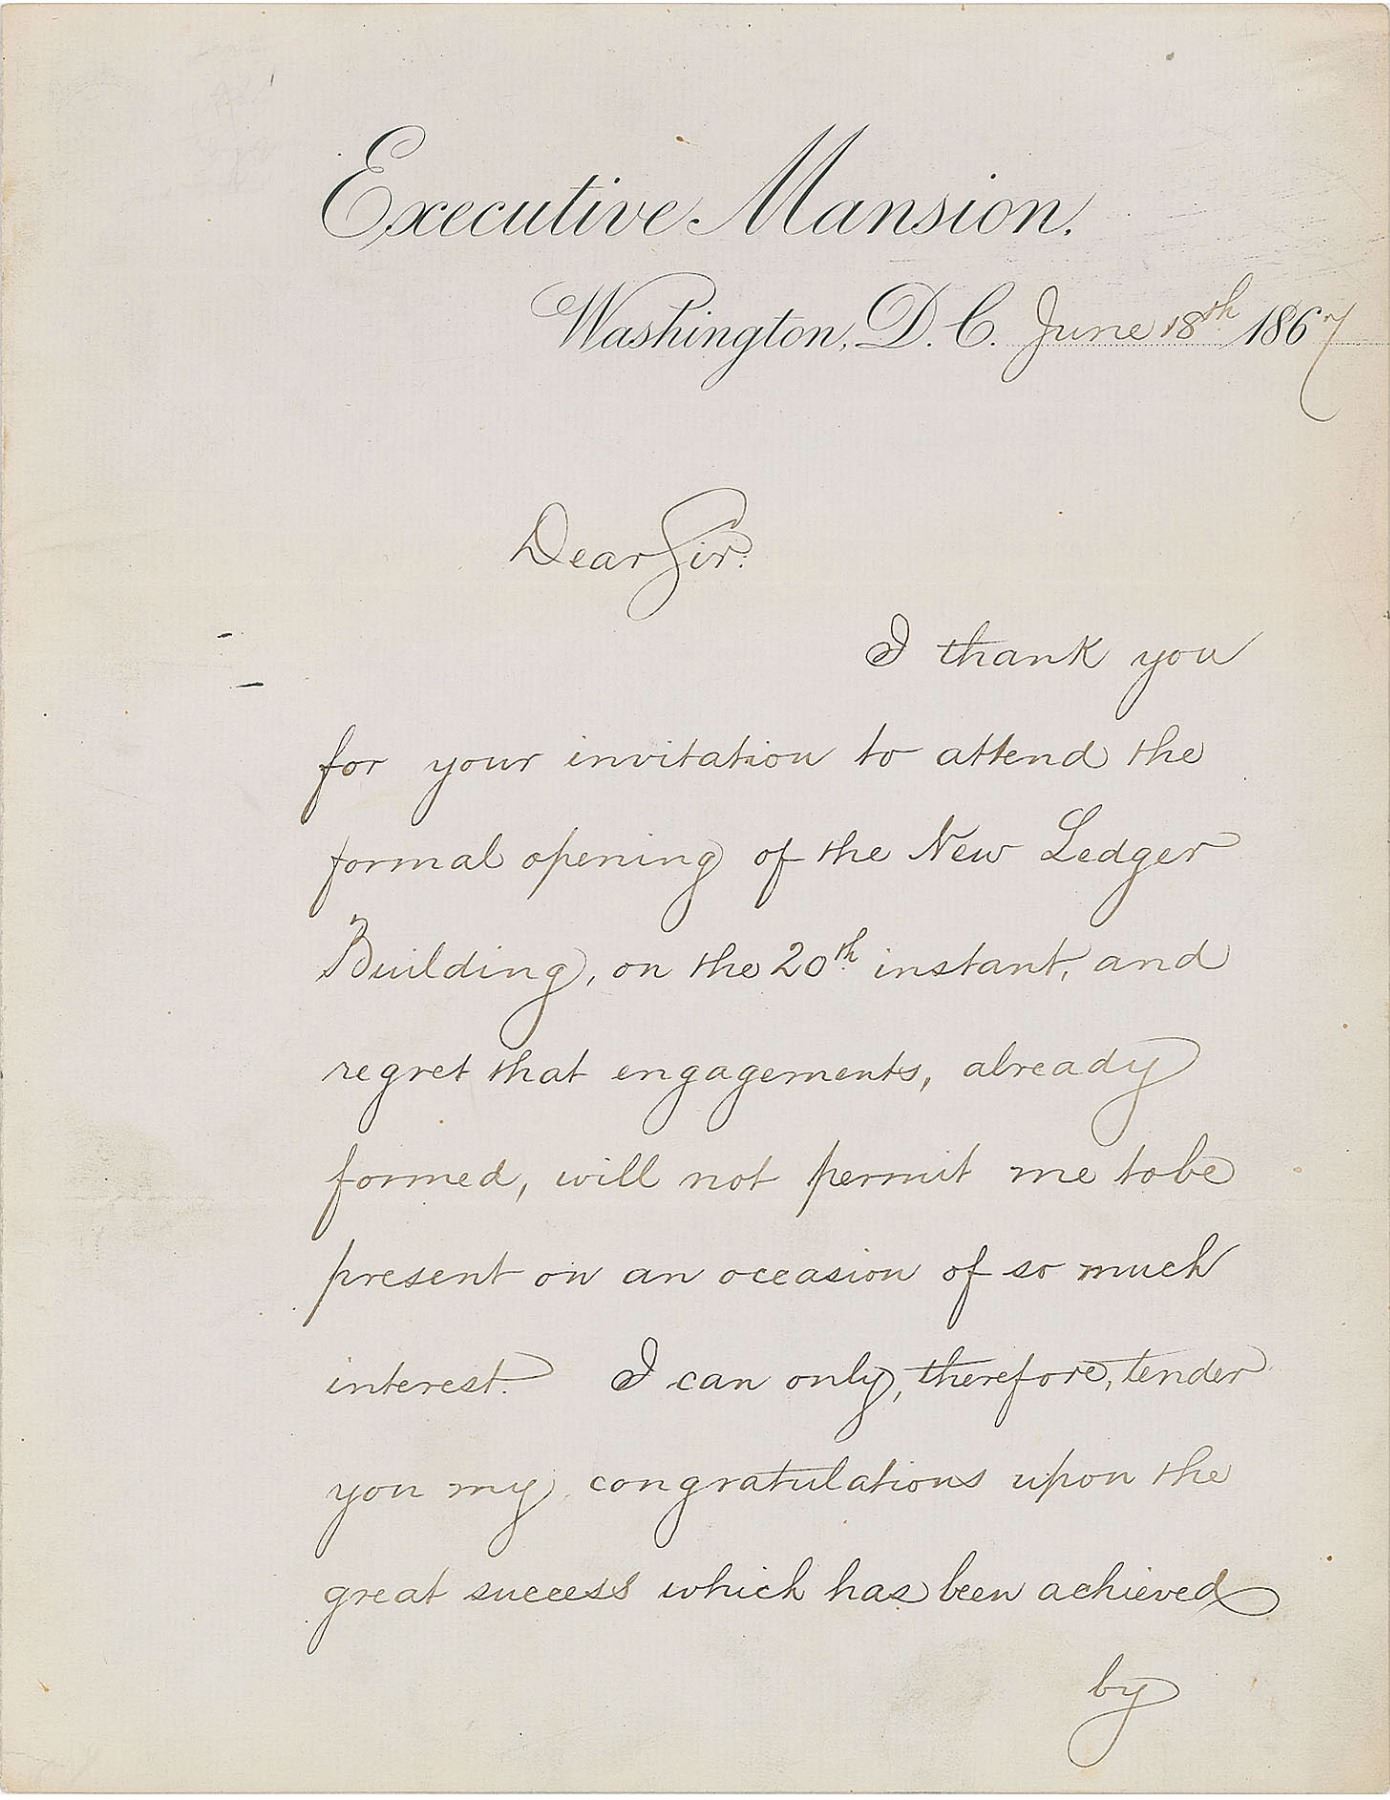 Executive Mansion.
Washington, D.C. June 18th 1867
Dear Sir:
I thank you
for your invitation to attend the
formal opening of the New Ledger
Building, on the 20th instant, and
regret that engagements, already
formed, will not permit me to be
present on an occasion of so much
interest. I can only, therefore, tender
you my congratulations upon the
great success which has been achieved
by